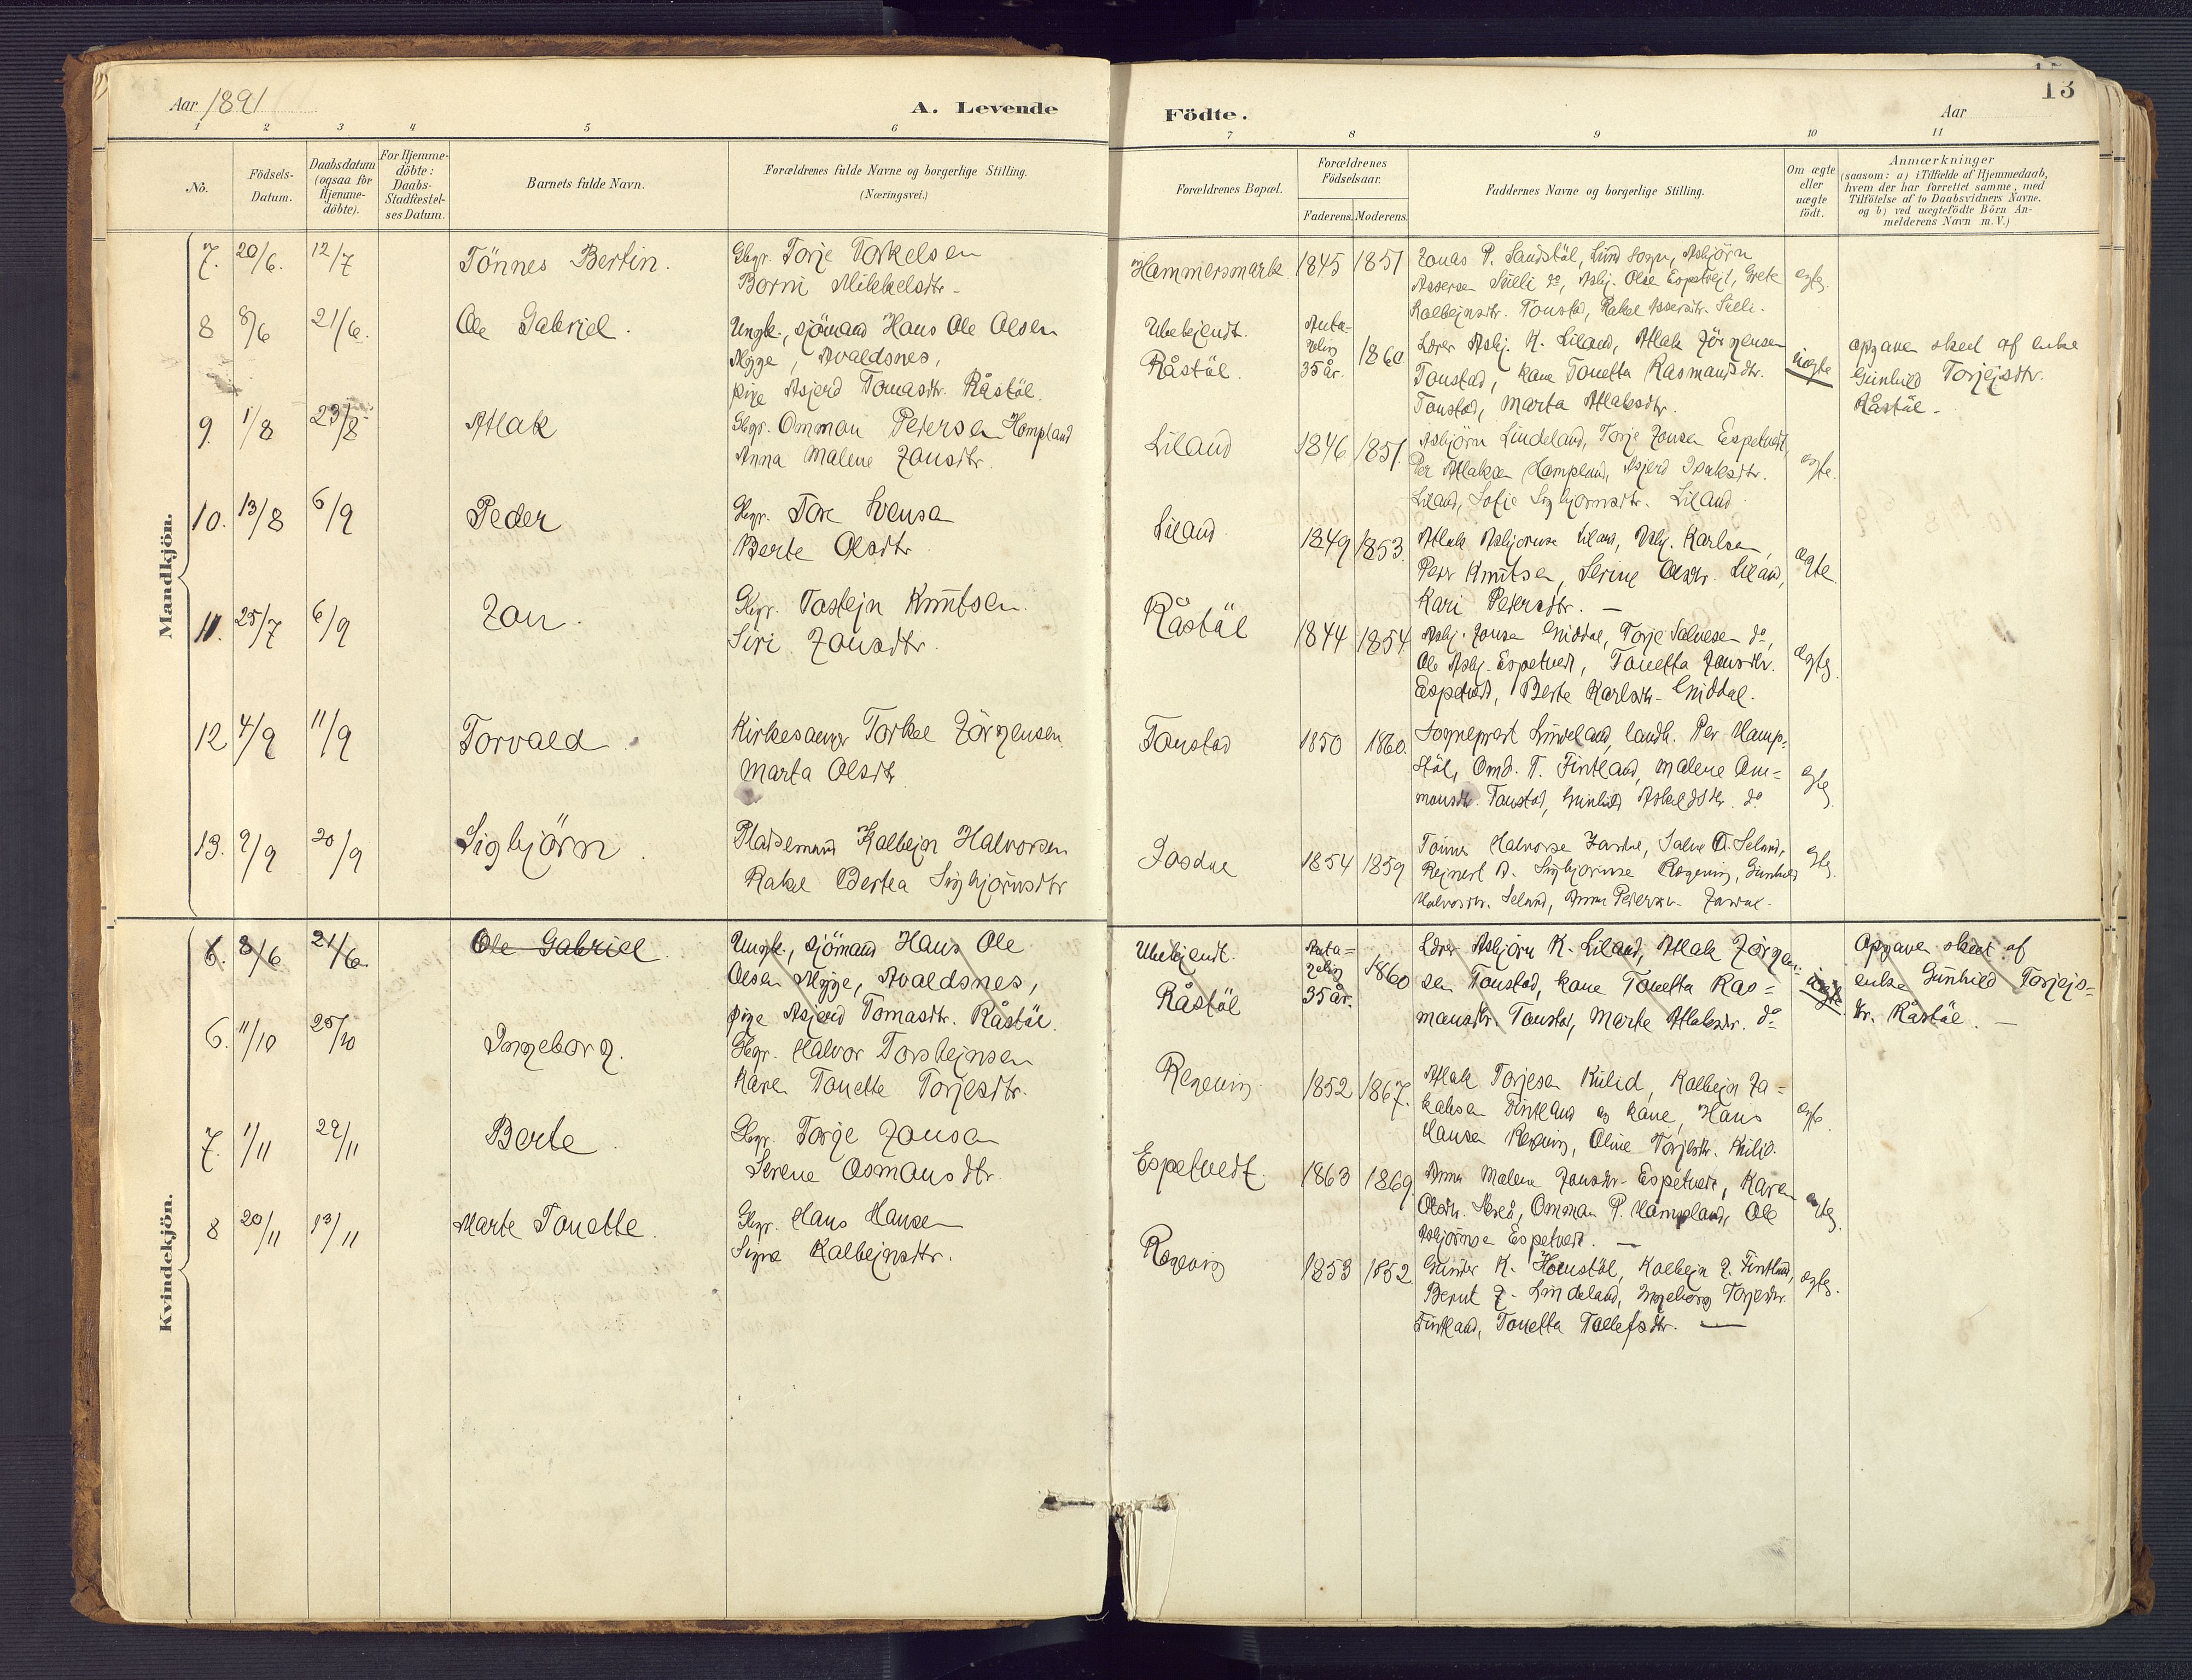 13
Aar 1891
A. Levende
Födte.
Aar
1 2 3 4 5 6 7 8 9 10 11
No.
Födsels-
Datum.
Daabsdatum
(ogsaa for
Hjemme-
döbte).
For Hjemme-
döbte:
Daabs-
Stadfæstel-
ses Datum.
Barnets fulde Navn.
Forældrenes fulde Navne og borgerlige Stilling.
(Næringsvei.)
Forældrenes Bopæl.
Forældrenes
Födselsaar.
Faderens. Moderens.
Faddernes Navne og borgerlige Stilling.
Om ægte
eller
uægte
födt.
Anmærkninger
(saasom: a) i Tilfælde af Hjemmedaab,
hvem der har forrettet samme, med
Tilföielse af to Daabsvidners Navne,
og b) ved uægtefödte Börn An-
melderens Navn m. V.)
Mandkjön.
7. 20/6. 12/7 Tönnes Bertin.
Gbgr. Torje Torkelsen
Borni Mikkelsdtr.
Hammersmark 1845 1851
Jonas P. Sandstöl, Lund Sogn, Asbjörn
Assersen Sielli do, Asbj. Olsen Espetvejt, Grete
Kolbejnsdtr. Tonstad, Rakel Assersdtr. Sielli.
egte.
8 8/6 21/6. Ole Gabriel.
Ungk., sjömand Hans Ole Olsen
Myge, Avaldsnes,
pige Asjerd Tomasdtr. Råstöl.
Ubekjendt.
Råstöl.
Anta-
gelig
35 år. 1860
Lærer Asbj. K. Liland, Atlak Jörgensen
Tonstad, kone Tonetta Rasmandsdtr.
Tonstad, Marta Atlaksdtr.
uægte
opgaven skeet af enke
Gunhild Torjejsdtr.
Råstöl.
9. 1/8 23/8 Atlak
Gbgr. Omman Petersen Hompland
Anna Malene Jonsdtr.
Liland 1846 1851.
Asbjörn Lindeland, Torje Jonsen Espetvedt,
Per Atlaksen Hompland, Asjerd Isaksdtr.
Liland, Sofie Sigbjornsdtr. Liland
egte.
10. 13/8 6/9 Peder
Gbgr. Tore Svensen
Berte Olsdtr.
Liland. 1849 1853.
Atlak Asbjornsen Liland, Asbj. Karlsen,
Peder Knutsen, Serine Olsdtr. Liland,
Kari Petersdtr. —
ægte
11. 25/7 6/9 Jon.
Gbgr. Tostejn Knutsen.
Siri Jonsdtr.
Råstöl 1844 1854
Asbj. Jonsen Guddal, Torje Salvesen do,
Ole Asbj. Espetvedt, Tonetta Jonsdtr.
Espetvedt, Berte Karlsdtr. Guddal.
ægte.
12 4/9 11/9 Torvald.
Kirkesanger Torkel Jörgensen
Marta Olsdtr
Tonstad 1850 1860.
Sogneprest Lindeland, landh. Per Homp-
stöl, Omd. T. Fintland, Malene Om-
monsdtr. Tonstad, Gunhild Askeldsdtr. do
egte
13. 9/9 20/9 Sigbjörn.
Pladsemand Kolbejn Halvorsen
Rakel Bertea Sigbjörnsdtr
Josdal 1854 1859
Tönnes Halvorsen Josdal, Salve O. Seland,
Rejnert A. Sigbjornsen Rægevig, Gunhild
Halvorsdtr. Seland, Anna Pedersdtr. Josdal.
egte.
Kvindekjön.
6. 8/6 21/6 Ole Gabriel.
Ungk., sjömand Hans Ole
Olsen Myge, Avaldsnes,
pige Asjerd Tomasdtr. Råstöl.
Ubekjendt.
Råstöl
Anta-
gelig
35 år. 1860
Lærer Asbjörn K. Liland, Atlak Jörgen-
sen Tonstad, kone Tonetta Ras-
mansdtr. Tonstad, Marte Atlaksdtr. do
uægte.
Opgaven skeet af
enke Gunhild Torjejs-
dtr. Råstöl. —
6. 11/10 25/10 Ingeborg.
Gbgr. Halvor Torstejnsen
Karen Tonette Torjesdtr.
Regevig 1852 1867.
Atlak Torjesen Kvilid, Kolbejn Ja-
kobsen Fintland og kone, Hans
Hansen Regevig, Oline Torjesdtr. Kvilid.
egte.
7. 1/11 29/11 Berte.
Gbgr. Torje Jonsen
Serene Osmonsdtr.
Espetvedt. 1863 1869.
Anna Malene Jonsdtr. Espetvedt, Karen
Olsdtr. Skreå, Omman P. Hompland, Ole
Asbjörnsen Espetvedt. —
egte.
8 20/11 13/11 Marte Tonette.
Gbgr. Hans Hansen
Signe Kolbejnsdtr.
Regevig 1853 1852
Gunder K. Houstöl, Kolbejn J. Fintland,
Bernt J. Lindeland, Ingeborg Torjesdtr.
Fintland, Tonetta Tollefsdtr. —
egte.